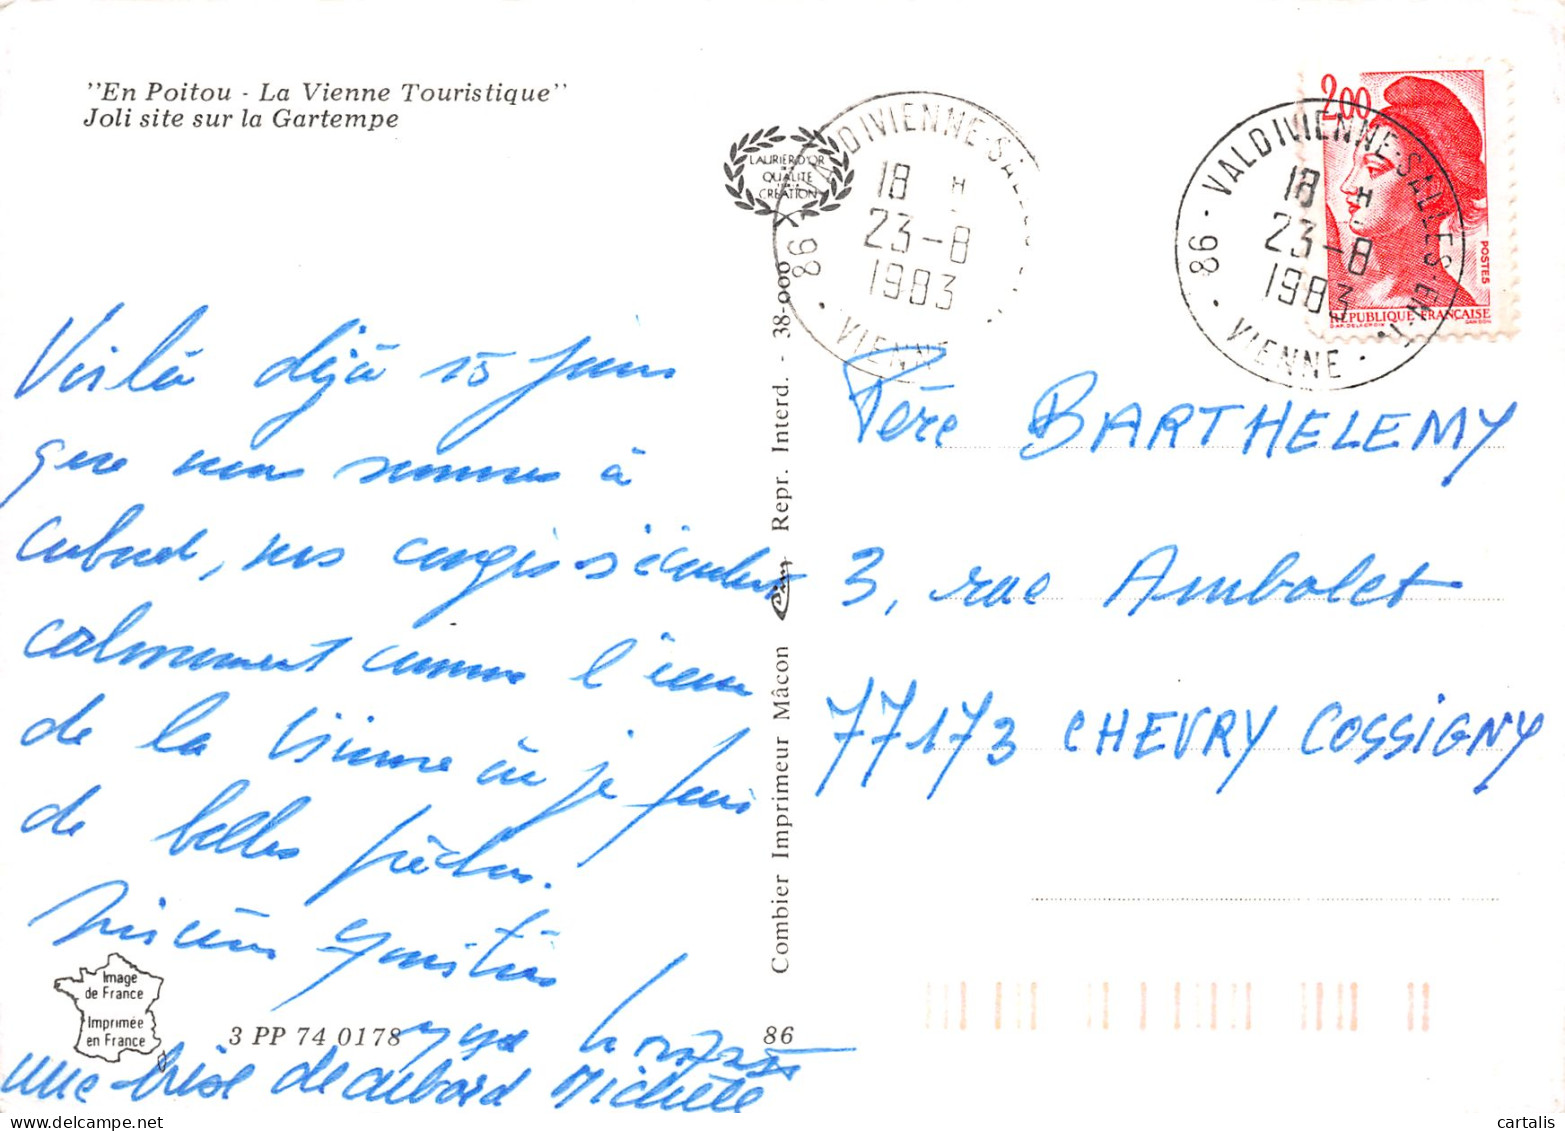 "En Poitou - La Vienne Touristique"
Joli site sur la Gartempe
Voilà déjà 15 jours
que nous sommes à
Cubord, nos congés s'écoulent
calmement comme l'eau
de la Vienne où je fais
de belles pêches.
une bise de Cubord Michèle
Image
de France
Imprimée
en France
3 PP 74 0178
86
Combier Imprimeur Mâcon
Repr. Interd. - 38-000
LAURIER D'OR
QUALITE
CREATION
86 · VALDIVIENNE-SALLES
18 H
23-8
1983
· VIENNE
86 · VALDIVIENNE-SALLES-EN-T.
18 H
23-8
1983
· VIENNE ·
2,00
POSTES
RÉPUBLIQUE FRANÇAISE
D'AP. DELACROIX GANDON
Père BARTHELEMY
3, rue Ambolet
77173 CHEVRY COSSIGNY
cartalis